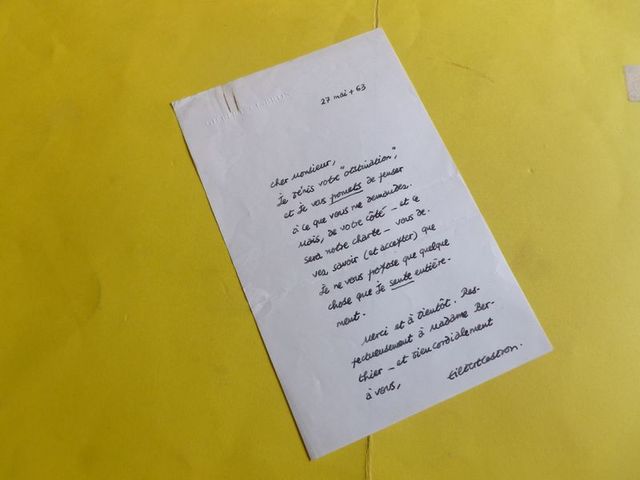 27 mai + 63
Cher Monsieur,
Je bénis votre "obstination",
et je vous promets de penser
à ce que vous me demandez.
Mais, de votre côté – et ce
sera notre charte – vous de-
vez savoir (et accepter) que
je ne vous propose que quelque
chose que je sente entière-
ment.
Merci et à bientôt. Res-
pectueusement à Madame Ber-
thier – et bien cordialement
à vous,